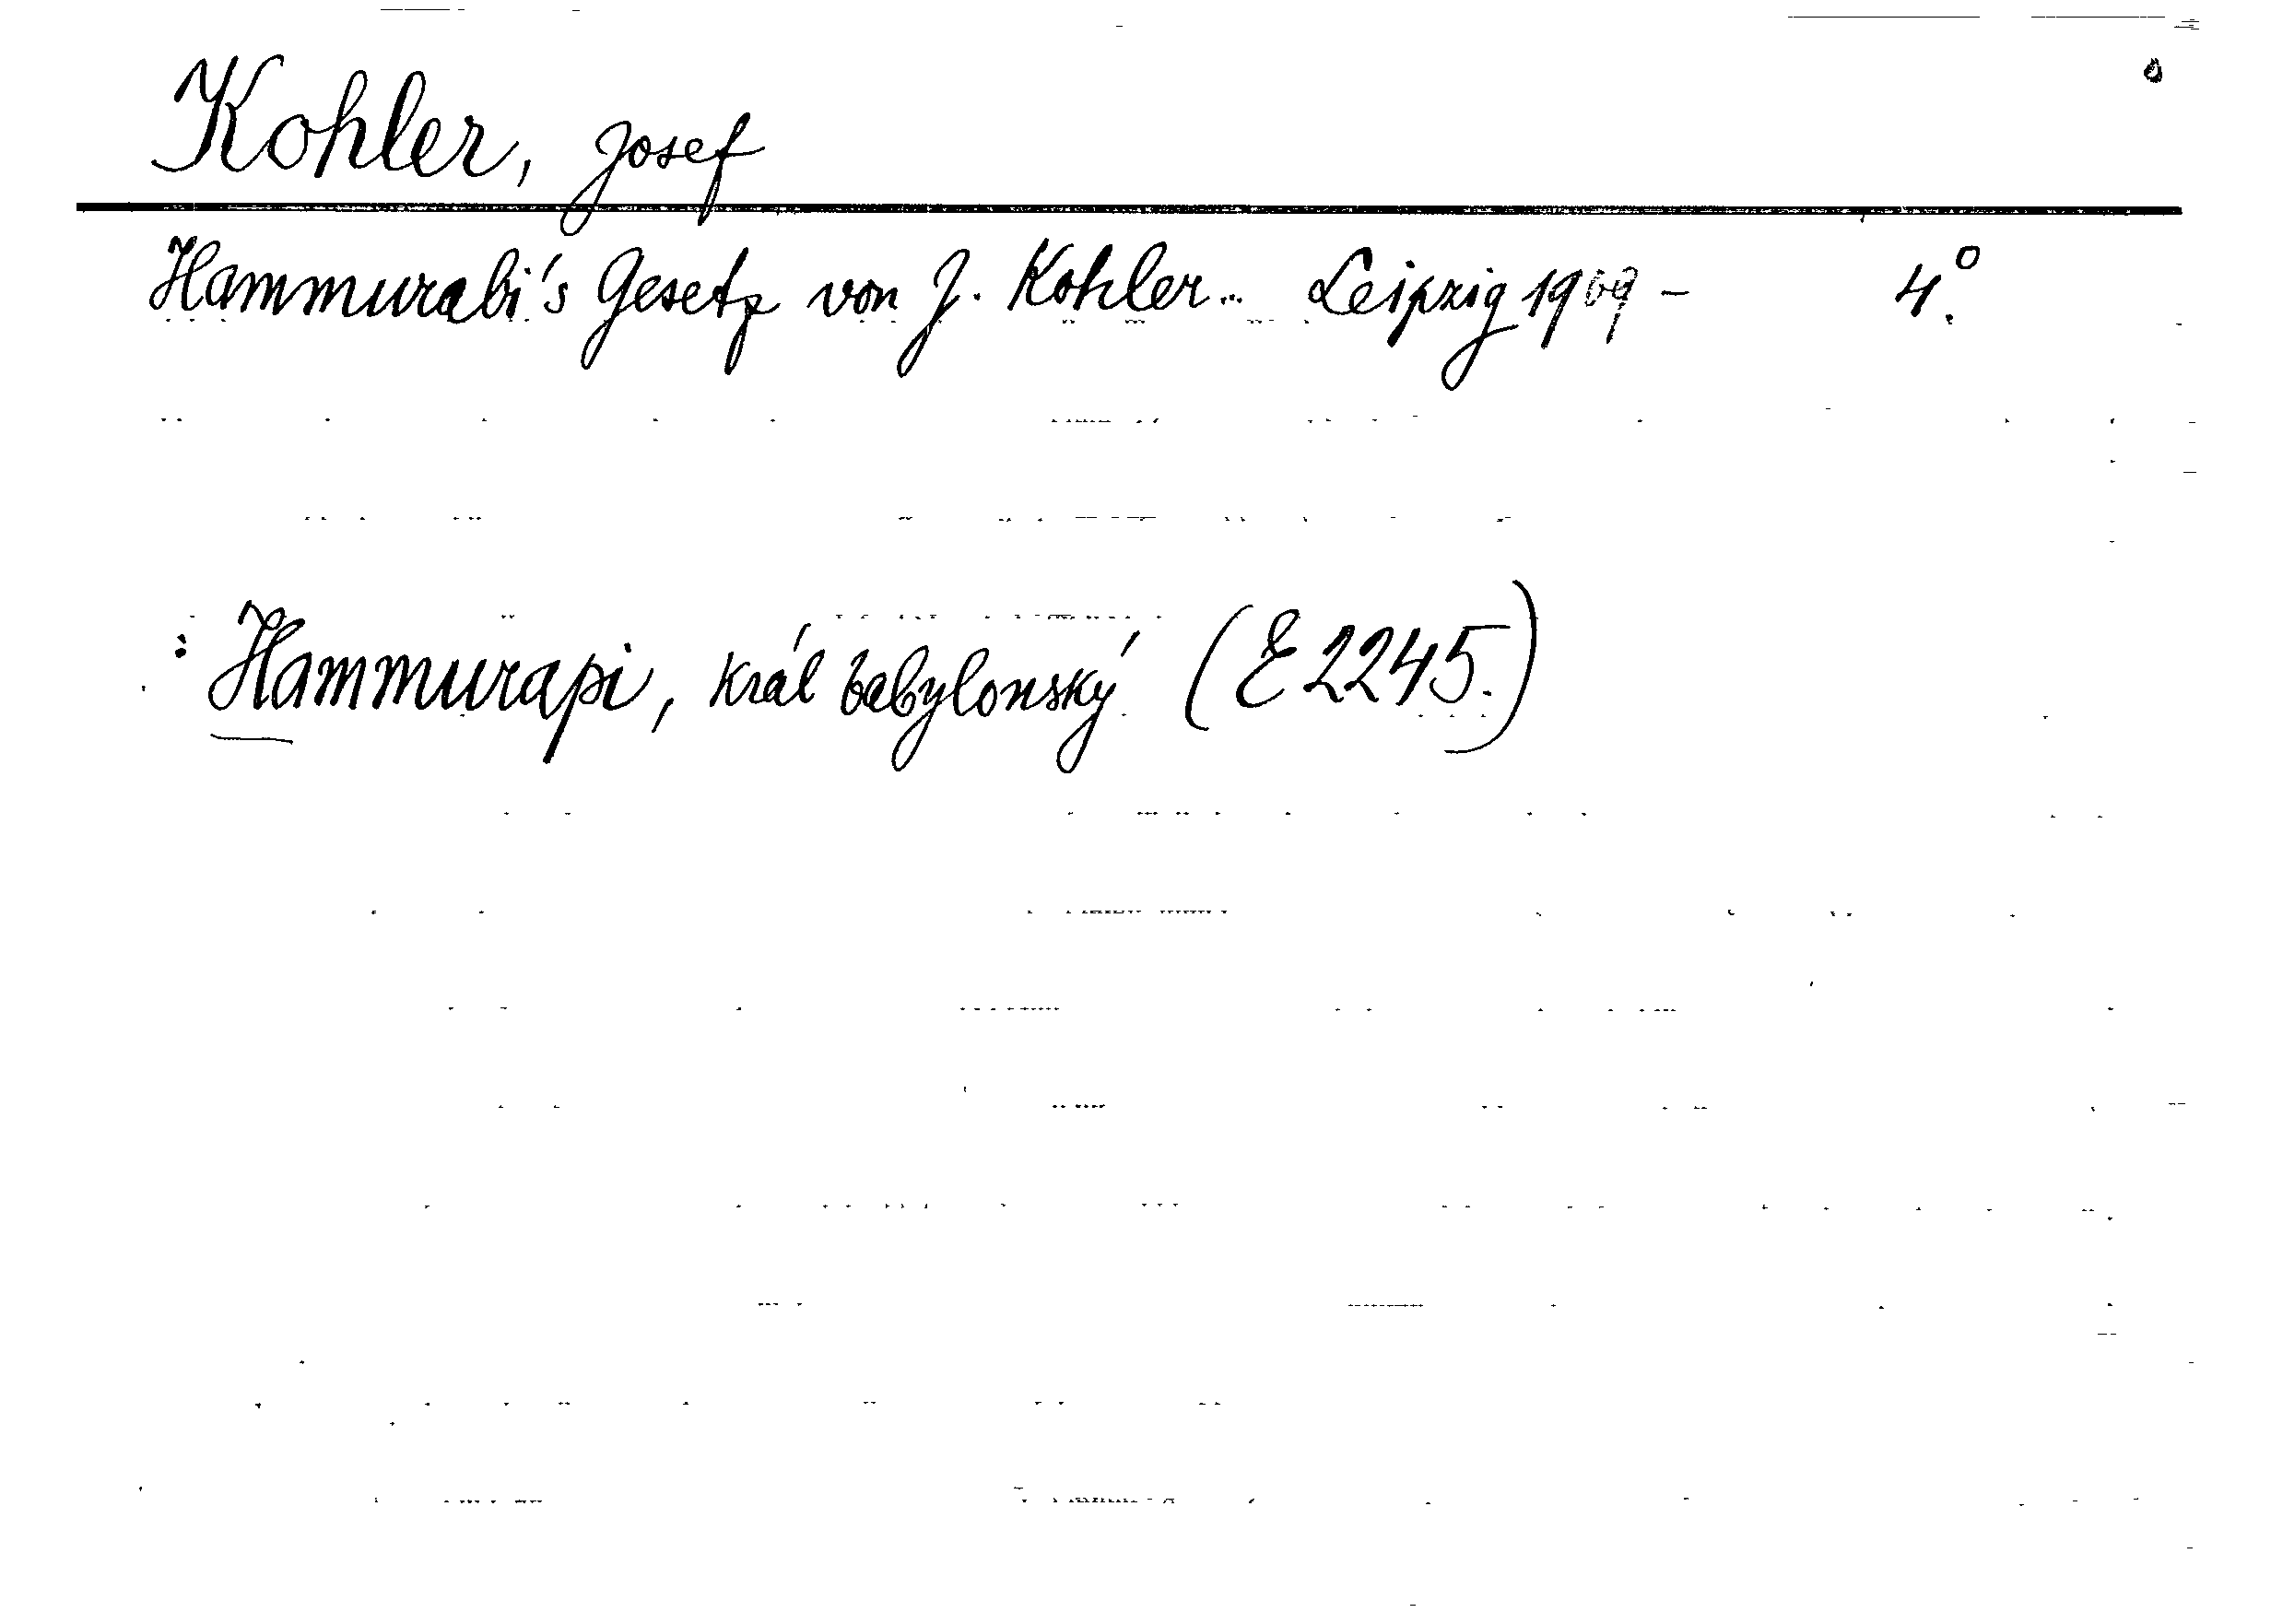 Kohler, Josef
Hammurabi's Gesetz von J. Kohler... Leipzig 1909 - 4°.
: Hammurapi, král babylonský (E 2245.)